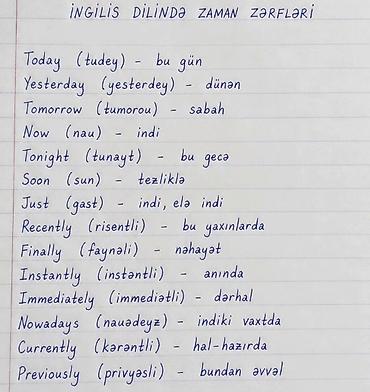 İNGİLİS DİLİNDƏ ZAMAN ZƏRFLƏRİ
Today (tudey) - bu gün
Yesterday (yesterdey) - dünən
Tomorrow (tumorou) - sabah
Now (nau) - indi
Tonight (tunayt) - bu gecə
Soon (sun) - tezliklə
Just (gast) - indi, elə indi
Recently (risentli) - bu yaxınlarda
Finally (faynəli) - nəhayət
Instantly (instəntli) - anında
Immediately (immediətli) - dərhal
Nowadays (nauədeyz) - indiki vaxtda
Currently (kərəntli) - hal-hazırda
Previously (privyəsli) - bundan əvvəl